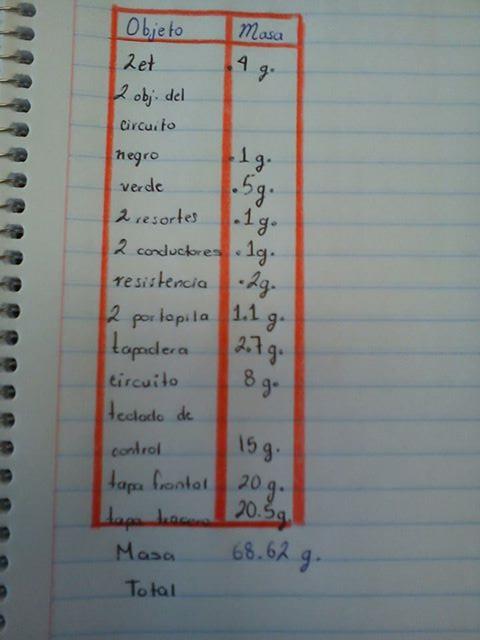 Objeto Masa
2et .4 g.
2 obj. del
circuito
negro .1g.
verde .5g.
2 resortes .1g.
2 conductores .1g.
resistencia .2g.
2 portapila 1.1 g.
tapadera 2.7 g.
circuito 8 g.
teclado de
control 15 g.
tapa frontal 20 g.
tapa tracera 20.5g.
Masa 68.62 g.
Total